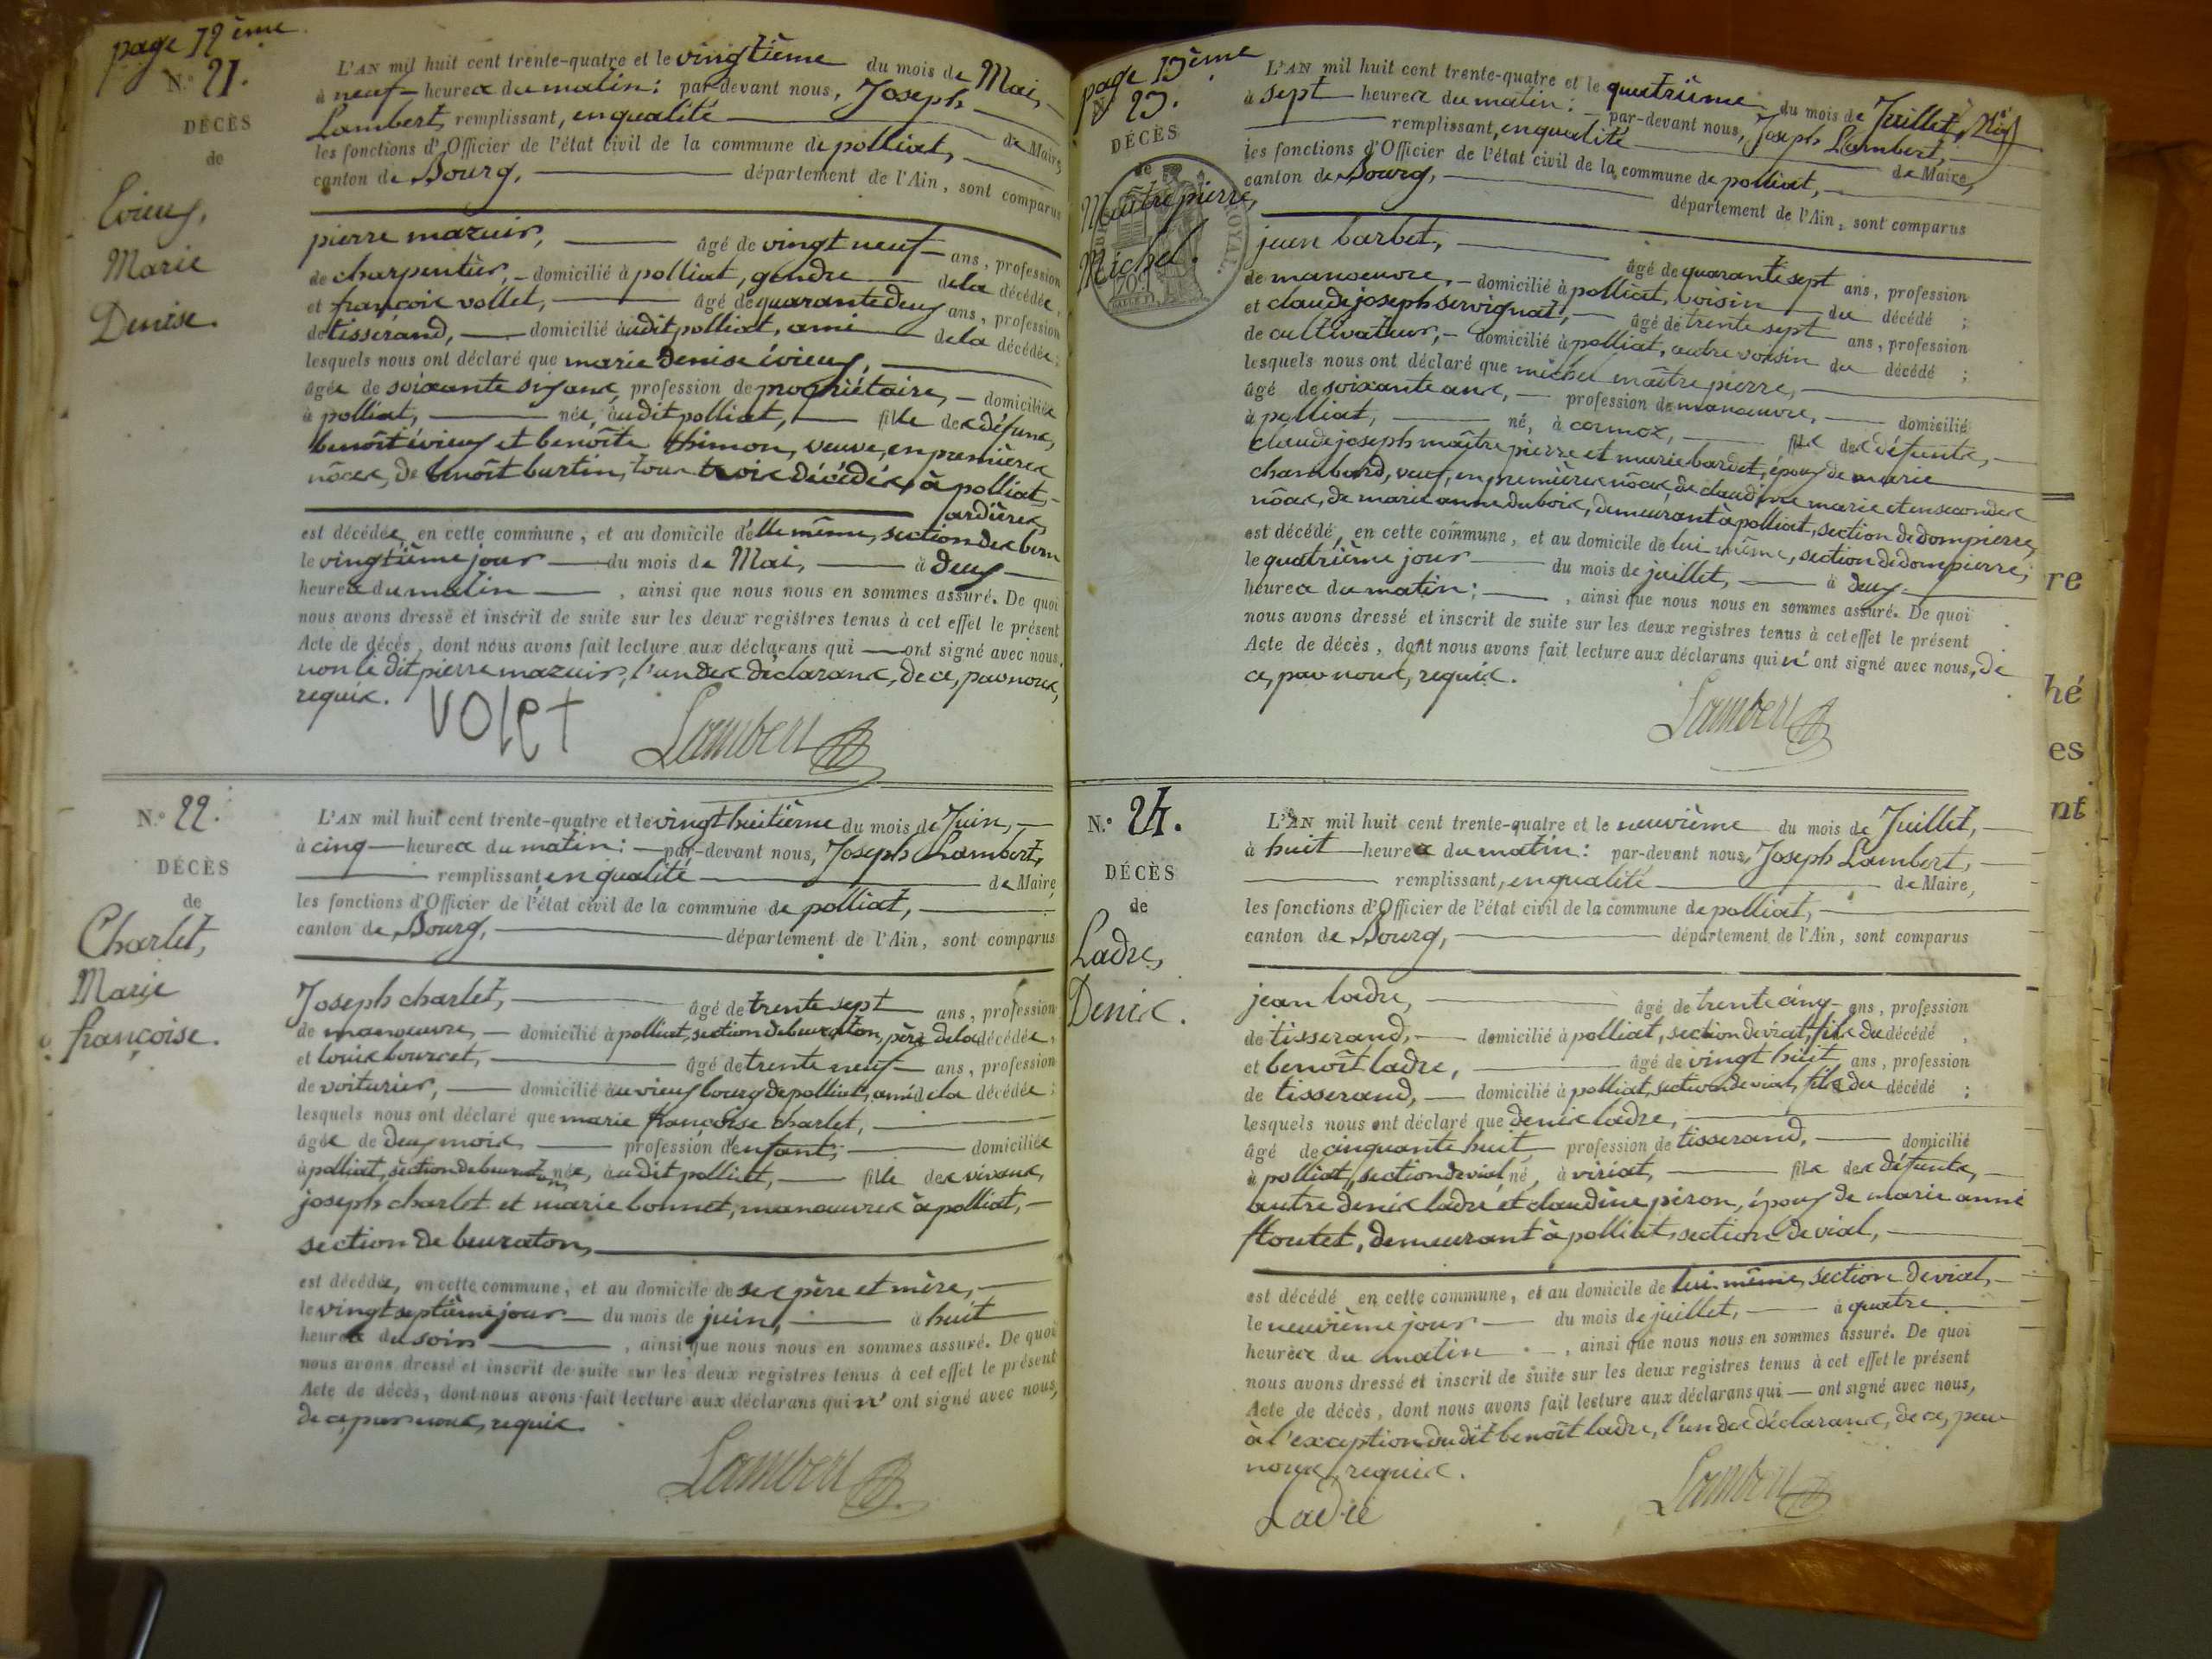 page 12ème
N.° 21.
DÉCÈS
de
Évieux,
Marie
Denise.
L'AN mil huit cent trente-quatre et le vingtième du mois de Mai,
à neuf heures du matin: par-devant nous, Joseph
Lambert, remplissant, en qualité de Maire,
les fonctions d'Officier de l'état civil de la commune de polliat,
canton de Bourg, département de l'Ain, sont comparus
pierre mazuir, âgé de vingt neuf ans, profession
de charpentier, domicilié à polliat, gendre de la décédée,
et françois vollet, âgé de quarante deux ans, profession
de tisserand, domicilié àudit polliat, ami de la décédée;
lesquels nous ont déclaré que marie denise évieux,
âgée de soixante six ans, profession de propriétaire, domiciliée
à polliat, née, àudit polliat, fille des défuns,
benoît évieux et benoîte thimon, veuve, en premières
nôces, de benoît burtin, tous trois décédés, à polliat,
ardières,
est décédée, en cette commune, et au domicile d'elle même, section des bern
le vingtième jour du mois de Mai, à deux
heures du matin, ainsi que nous nous en sommes assuré. De quoi
nous avons dressé et inscrit de suite sur les deux registres tenus à cet effet le présent
Acte de décès, dont nous avons fait lecture aux déclarans qui ont signé avec nous,
non le dit pierre mazuir, l'un des déclarans, de ce, par nous,
requis.
volet
Lambert
N.° 22.
DÉCÈS
de
Charlet,
Marie
françoise.
L'AN mil huit cent trente-quatre et le vingt huitième du mois de Juin,
à cinq heures du matin: par-devant nous, Joseph Lambert,
remplissant, en qualité de Maire,
les fonctions d'Officier de l'état civil de la commune de polliat,
canton de Bourg, département de l'Ain, sont comparus
Joseph charlet, âgé de trente sept ans, profession
de manoeuvre, domicilié à polliat, section de beuraton, père de la décédée,
et louis bourcet, âgé de trente neuf ans, profession
de voiturier, domicilié au vieux bourg de polliat, ami de la décédée;
lesquels nous ont déclaré que marie françoise charlet,
âgée de deux mois profession d'enfant, domiciliée
à polliat, section de beuraton, née, àudit polliat, fille des vivans,
joseph charlet et marie bonnet, manoeuvres à polliat,
section de beuraton,
est décédée, en cette commune, et au domicile de ses père et mère,
le vingt septième jour du mois de juin, à huit
heures du soir, ainsi que nous nous en sommes assuré. De quoi
nous avons dressé et inscrit de suite sur les deux registres tenus à cet effet le présent
Acte de décès, dont nous avons fait lecture aux déclarans qui n'ont signé avec nous,
de ce, par nous, requis.
Lambert
page 13ème
N 23.
DÉCÈS
de
Maître pierre,
Michel.
ROYAL.
L'AN mil huit cent trente-quatre et le quatrième du mois de Juillet,
à sept heures du matin: par-devant nous, Joseph Lambert,
remplissant, en qualité de Maire,
les fonctions d'Officier de l'état civil de la commune de polliat,
canton de Bourg, département de l'Ain, sont comparus
jean barbet, âgé de quarante sept ans, profession
de manoeuvre, domicilié à polliat, voisin du décédé;
et claude joseph servignat, âgé de trente sept ans, profession
de cultivateur, domicilié à polliat, autre voisin du décédé;
lesquels nous ont déclaré que michel maître pierre,
âgé de soixante ans, profession de manoeuvre, domicilié
à polliat, né, à cormoz, fils des défunts,
claude joseph maître pierre et marie bardet, époux de marie
chambard, veuf, en premières nôces, de claudine marie et en secondes
nôces, de marie anne dubois, demeurant à polliat, section de dompierre,
est décédé, en cette commune, et au domicile de lui même, section de dompierre;
le quatrième jour du mois de juillet, à deux
heures du matin;, ainsi que nous nous en sommes assuré. De quoi
nous avons dressé et inscrit de suite sur les deux registres tenus à cet effet le présent
Acte de décès, dont nous avons fait lecture aux déclarans qui n'ont signé avec nous, de
ce, par nous, requis.
Lambert
N.° 24.
DÉCÈS
de
Ladre,
Denis.
L'AN mil huit cent trente-quatre et le neuvième du mois de Juillet,
à huit heures du matin: par-devant nous, Joseph Lambert,
remplissant, en qualité de Maire,
les fonctions d'Officier de l'état civil de la commune de polliat,
canton de Bourg, département de l'Ain, sont comparus
jean ladre, âgé de trente cinq ans, profession
de tisserand, domicilié à polliat, section de vial, fils du décédé,
et benoît ladre, âgé de vingt huit ans, profession
de tisserand, domicilié à polliat, section de vial, fils du décédé;
lesquels nous ont déclaré que denis ladre,
âgé de cinquante huit profession de tisserand, domicilié
à polliat, section de vial, né, à viriat, fils des défunts,
autre denis ladre et claudine péron, époux de marie anne
floutet, demeurant à polliat, section de vial,
est décédé en cette commune, et au domicile de lui même, section de vial,
le neuvième jour du mois de juillet, à quatre
heures du matin, ainsi que nous nous en sommes assuré. De quoi
nous avons dressé et inscrit de suite sur les deux registres tenus à cet effet le présent
Acte de décès, dont nous avons fait lecture aux déclarans qui ont signé avec nous,
à l'exception du dit benoît ladre, l'un des déclarans, de ce, par
nous, requis.
Ladre
Lambert
re
hé
es
nt